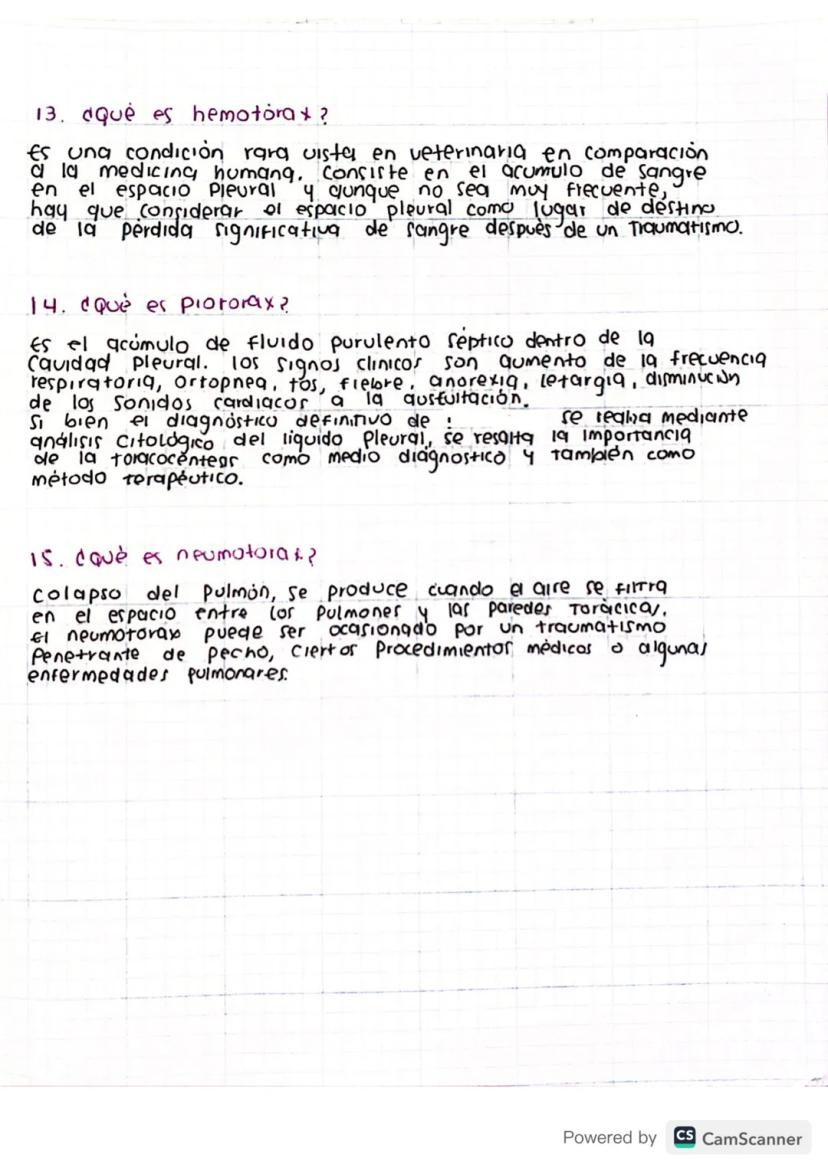 13. ¿Qué es hemotórax?
Es una condición rara vista en veterinaria en comparación
a la medicina humana. Consiste en el acumulo de sangre
en el espacio pleural y aunque no sea muy frecuente,
hay que considerar el espacio pleural como lugar de destino
de la pérdida significativa de sangre después de un traumatismo.
14. ¿Qué es piotorax?
Es el acúmulo de fluido purulento séptico dentro de la
cavidad pleural. los signos clínicos son aumento de la frecuencia
respiratoria, ortopnea, tos, fiebre, anorexia, letargia, disminución
de los sonidos cardiacos a la austultación.
Si bien el diagnóstico definitivo de se realiza mediante
análisis citológico del líquido pleural, se resalta la importancia
de la toracocentesis como medio diágnostico y también como
método terapéutico.
15. ¿Qué es neumotorax?
Colapso del pulmón, se produce cuando el aire se filtra
en el espacio entre los pulmones y las paredes torácicas.
El neumotorax puede ser ocasionado por un traumatismo
penetrante de pecho, ciertos procedimientos médicos o algunas
enfermedades pulmonares.
Powered by CS CamScanner